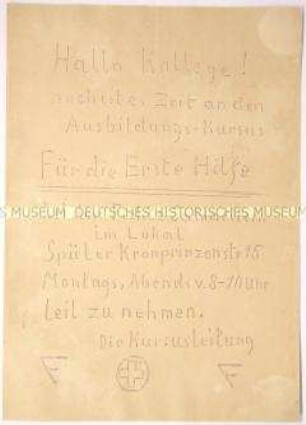 Hallo Kollege!
höchstes Zeit an den
Ausbildungs-Kursus
Für die Erste Hilfe
MUSEUM DEUTSCHES HISTORISCHES MUSEUM
im Lokal
Später Kronprinzenstr 15
Montags, Abends v. 8-10 Uhr
teil zu nehmen.
Die Kursusleitung